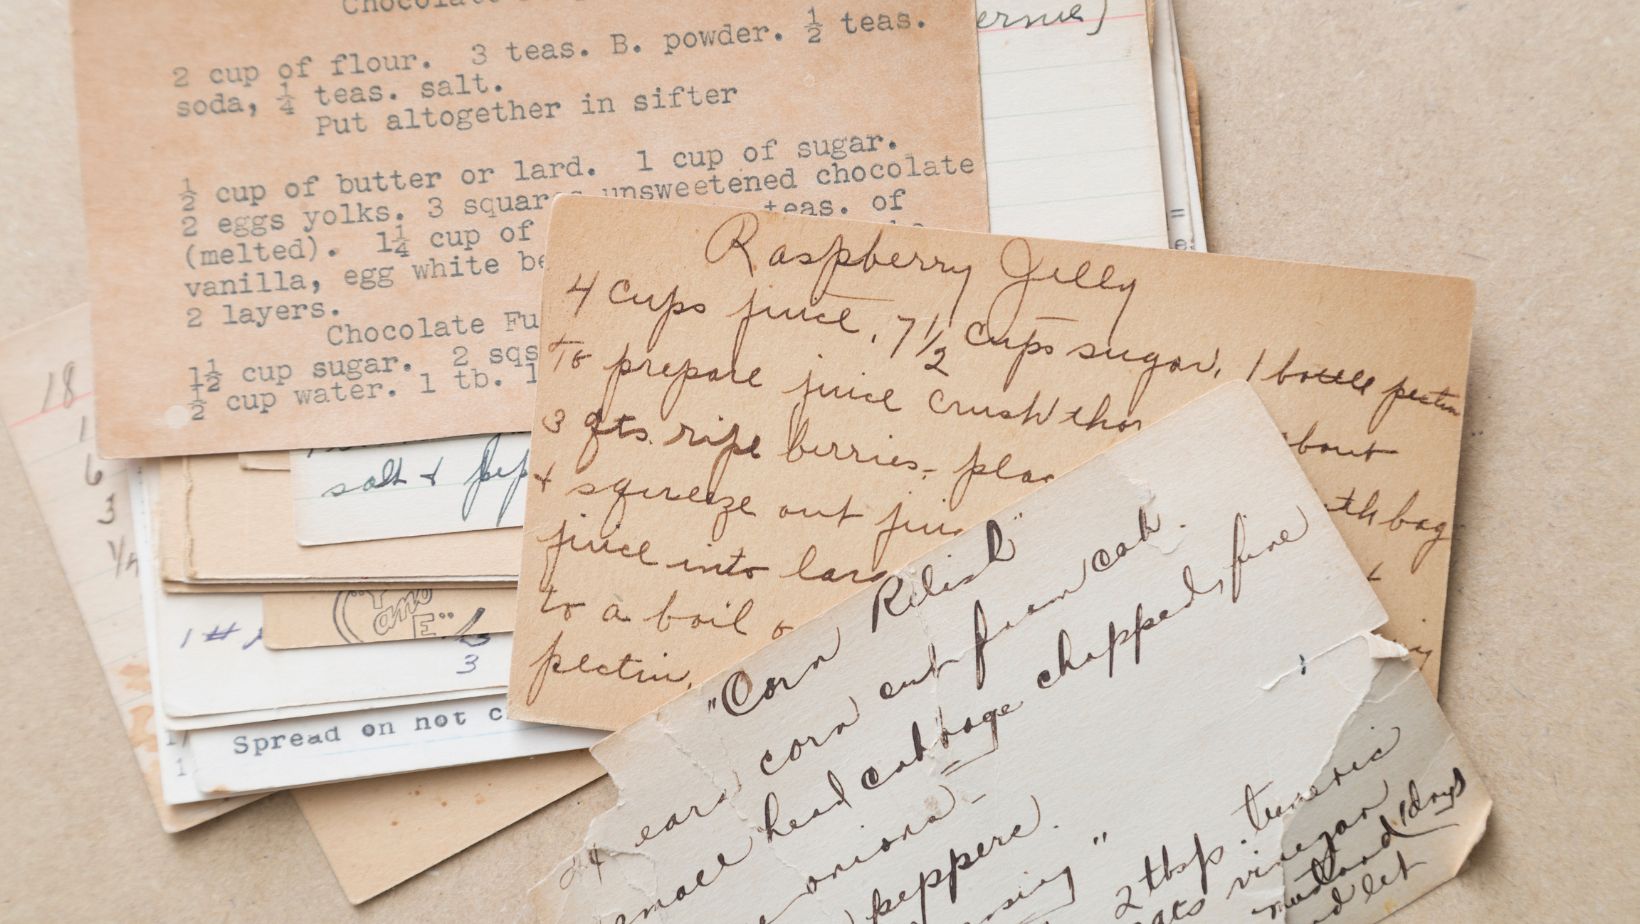 Chocolate
2 cup of flour. 3 teas. B. powder. ½ teas.
soda, ¼ teas. salt.
Put altogether in sifter
½ cup of butter or lard. 1 cup of sugar.
2 eggs yolks. 3 squar unsweetened chocolate
(melted). 1¼ cup of teas. of
vanilla, egg white be
2 layers.
Chocolate Fu
1½ cup sugar. 2 sqs
½ cup water. 1 tb. 1
18
1
6
3
1/4
salt + pep
"Y and E"
1 #
3
Spread on not c
Raspberry Jelly
4 cups juice, 7 1/2 cups sugar, 1 bottle pectin
To prepare juice crush thor about
3 qts. ripe berries - plac
+ squeeze out jui th bag
juice into larg
to a boil
pectin.
"Corn Relish"
24 ears corn cut from cob.
small head cabbage chopped, fine
onions -
peppers.
2 tbsp. tumeric
vinegar
mustard